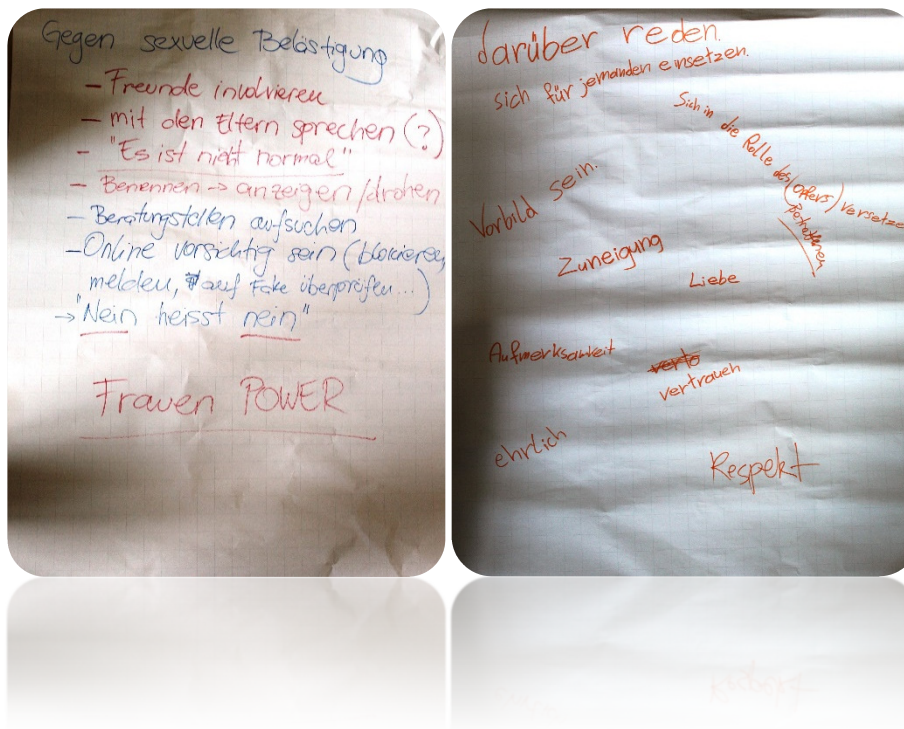 Gegen sexuelle Belästigung
- Freunde involvieren
- mit den Eltern sprechen (?)
- "Es ist nicht normal"
- Benennen -> anzeigen/drohen
- Beratungstellen aufsuchen
- Online vorsichtig sein (blokieren,
melden, auf Fake überprüfen...)
→ "Nein heisst nein"
Frauen POWER
darüber reden.
sich für jemanden einsetzen.
Sich in die Rolle des (Opfers) versetze
Betroffenen
Vorbild sein.
Zuneigung
Liebe
Aufmerksamkeit
verto
vertrauen
ehrlich
Respekt